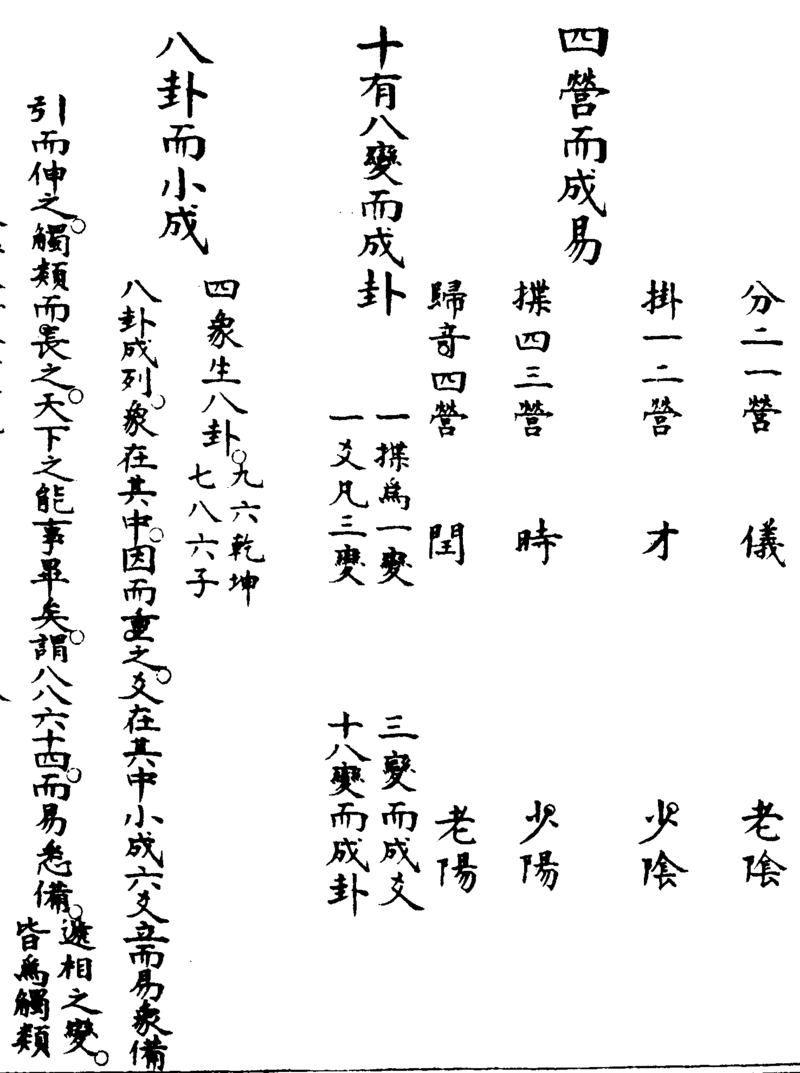 四營而成易
分二一營 儀 老陰
掛一二營 才 少陰
揲四三營 時 少陽
歸竒四營 閏 老陽
十有八變而成卦
一揲爲一變
一爻凡三變
三變而成爻
十八變而成卦
八卦而小成
四象生八卦。
九六乾坤
七八六子
八卦成列。象在其中。因而重之。爻在其中小成六爻立而易象備
引而伸之。觸類而長之。天下之能事畢矣。謂八八六十四。而易悉備。
遞相之變。
皆爲觸類